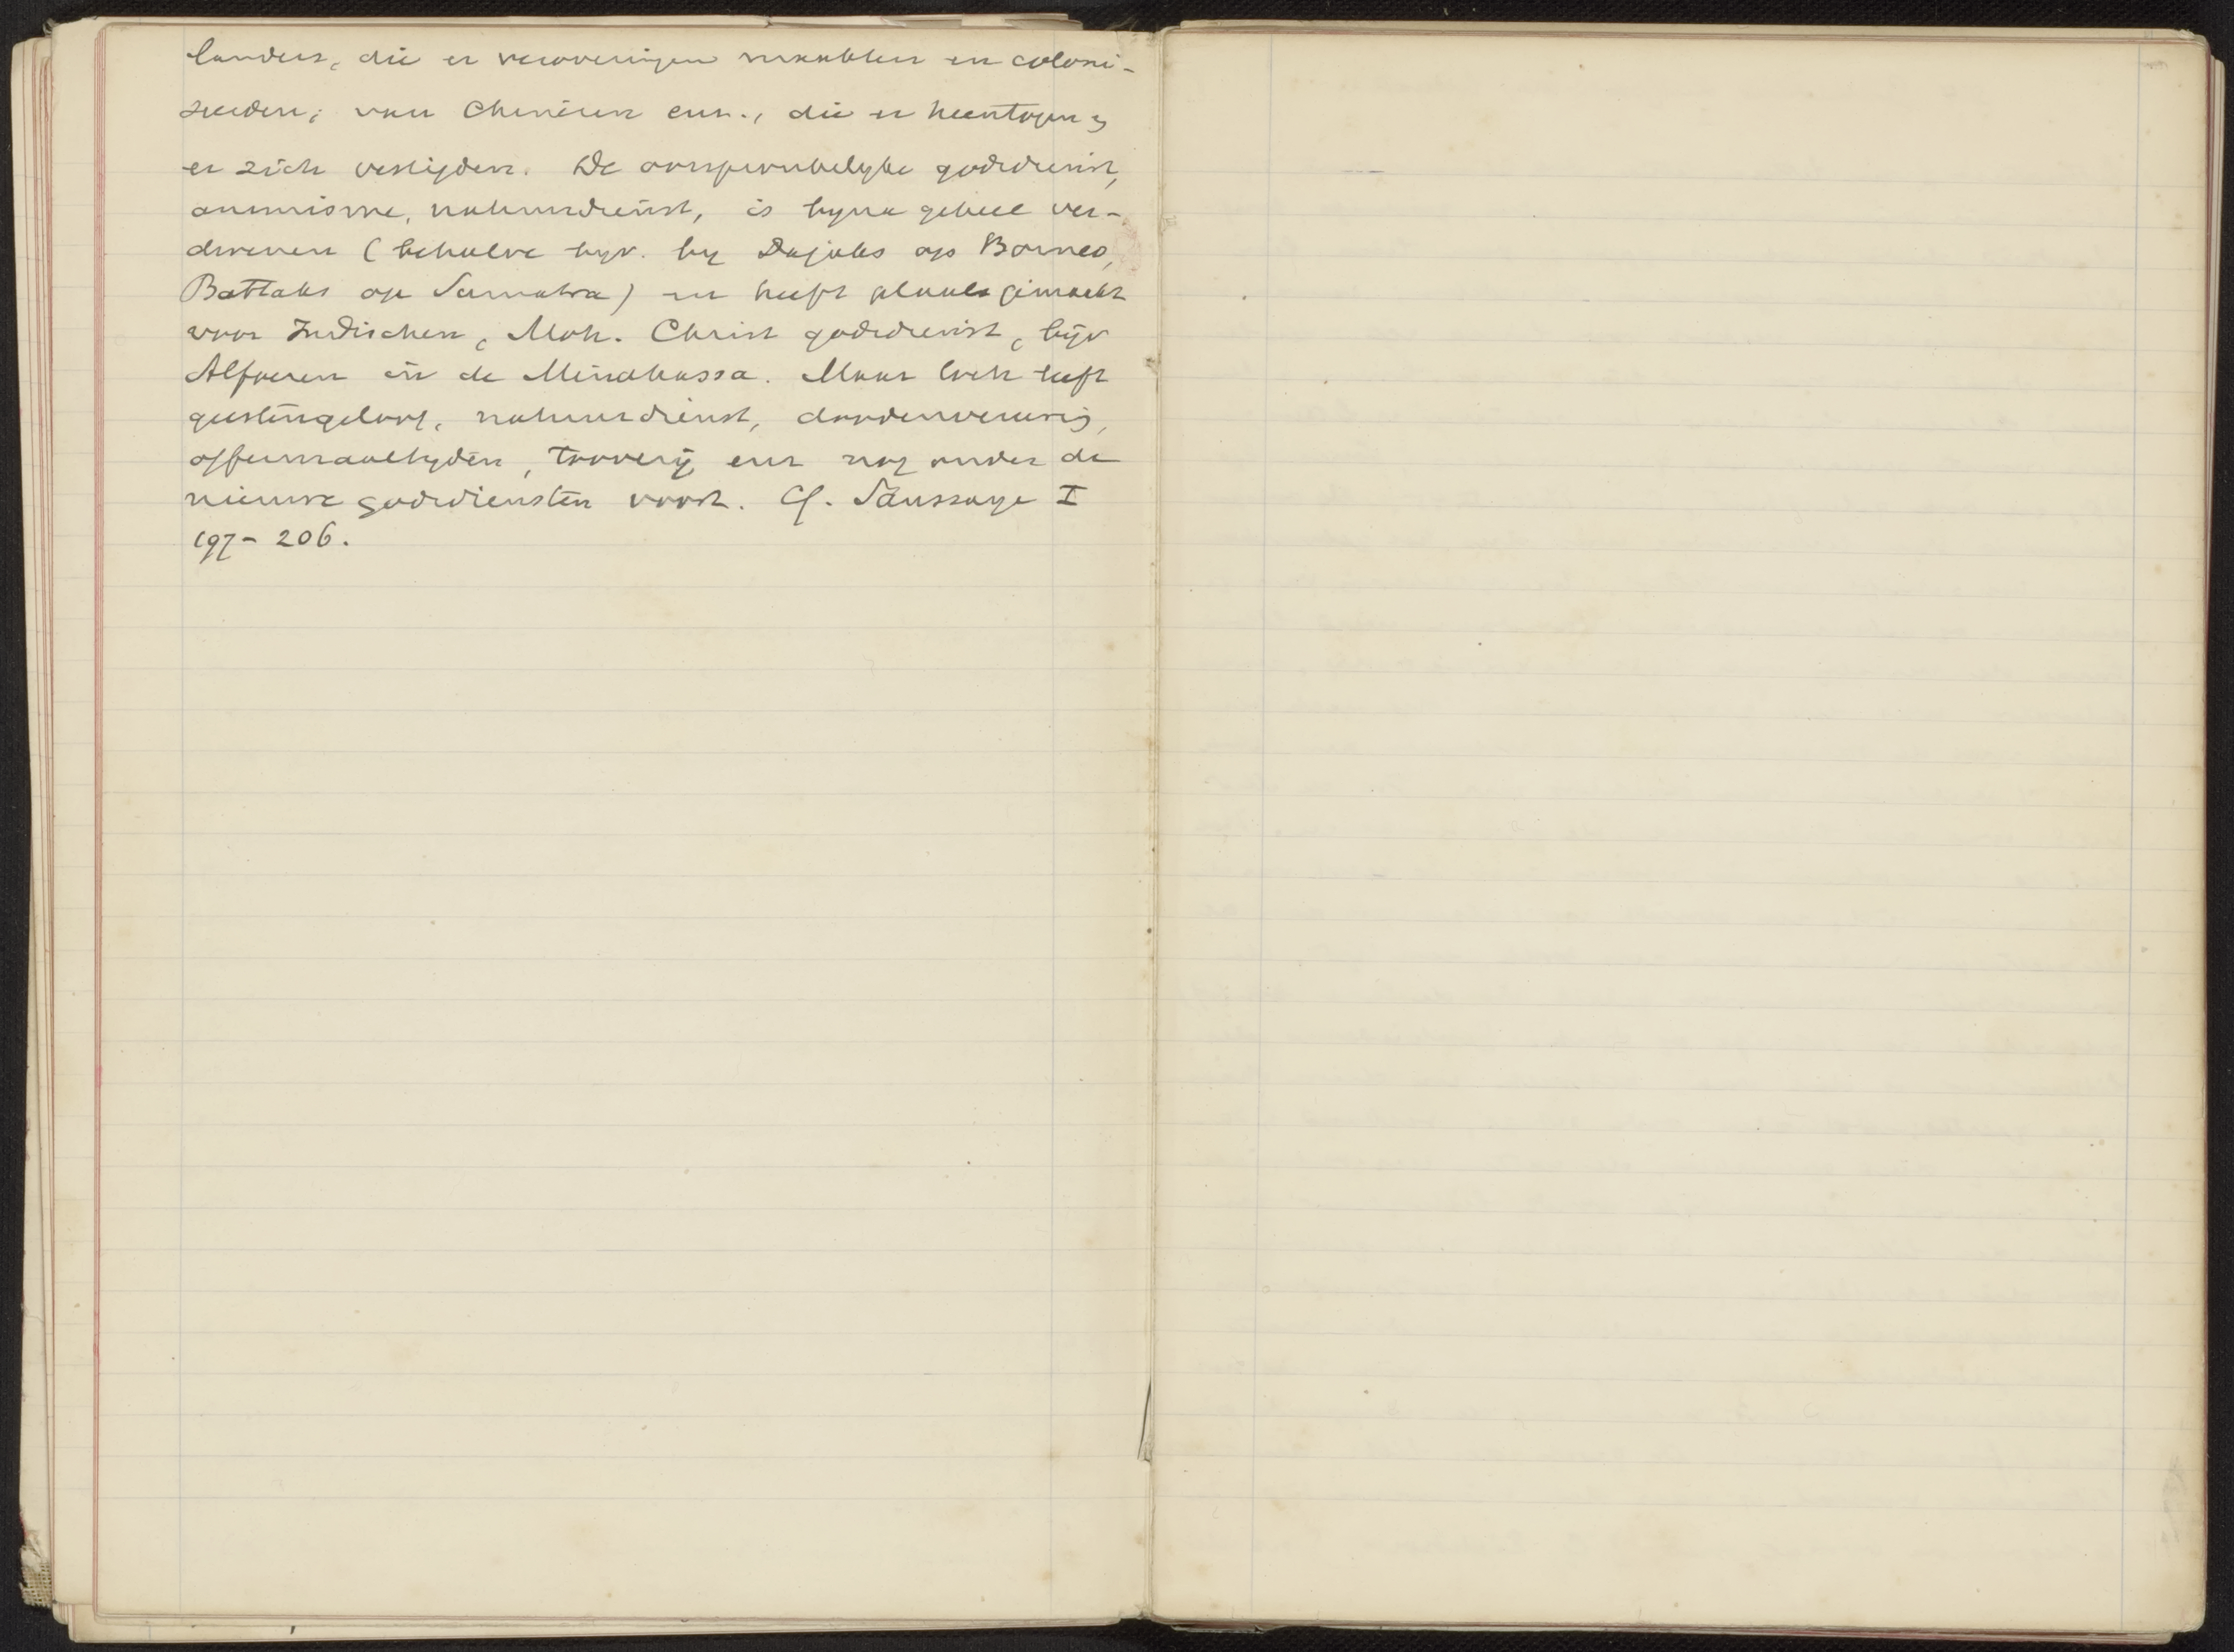 landers, die er veroveringen maakten en coloni-
seerden; van Chinezen enz., die er heentogen &
er zich vestigden. De oorspronkelyke godsdienst,
animisme, natuurdienst, is byna geheel ver-
dreven (behalve byv. by Dajaks op Borneo,
Battaks op Sumatra) en heeft plaats gemaakt
voor Indischen, Moh. Christ godsdienst, byv
Alfoeren in de Minahassa. Maar toch leeft
geestengeloof, natuurdienst, doodenvereerig,
offermaaltyden, toovery enz nog onder de
nieuwe godsdiensten voort. Cf. Saussaye I
197-206.